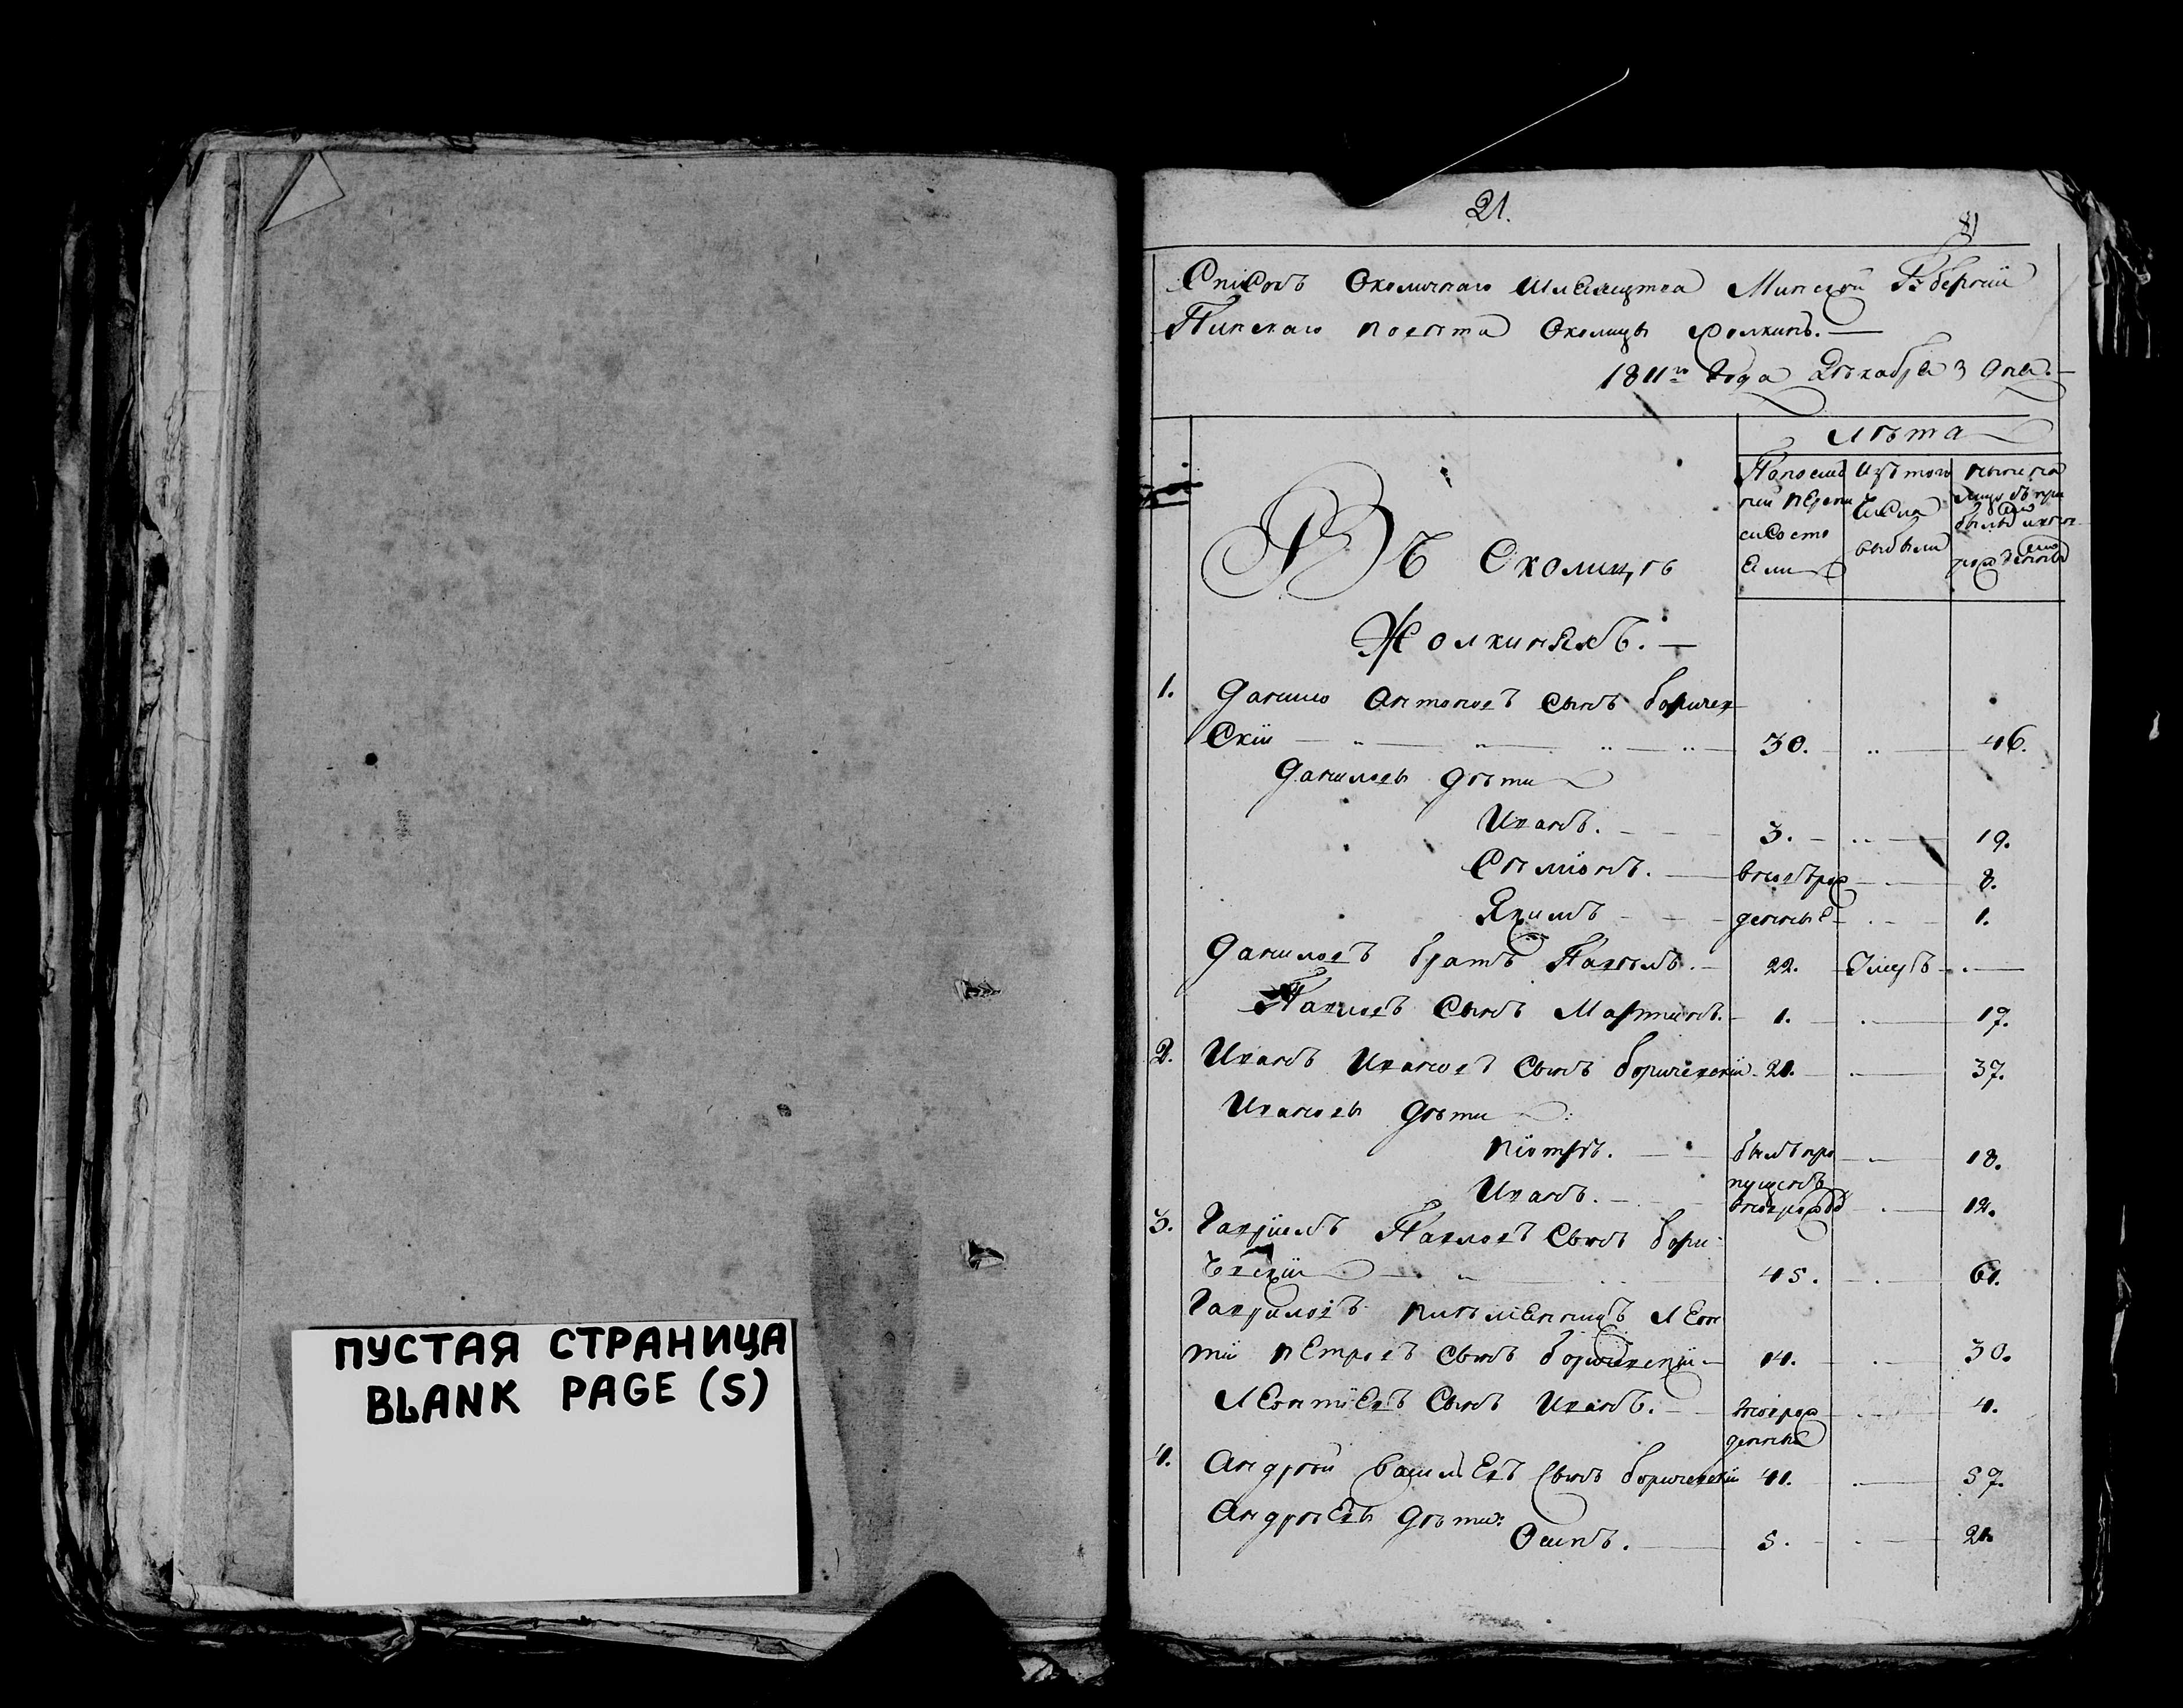 ПУСТАЯ СТРАНИЦА
BLANK PAGE (S)
21.
81
Списокъ Околичнаго Шляхецтва Минской Губернїи
Пинскаго повета Околицы Жолкинъ. —
1811го Года Декабря 3 дня. —
Лѣта
По последней ревизи состояли
Изъ того числа выбыли
Въ Околицѣ
Жолкиняхъ. —
1. Данило Антоновъ сынъ Боричев
Скїи 30. 46.
Даниловы дѣти
Иванъ. 3. 19.
Сѣмїонъ. вновърож 8.
Якимъ денные 1.
Даниловъ братъ Павелъ. 22. Умеръ
Павловъ сынъ Мартинъ. 1. 17.
2. Иванъ Ивановъ сынъ Боричевскїи 21. 37.
Ивановы дѣти
Пїотръ. былъ про 18.
пущенъ
Иванъ. 12.
3. Гаврїилъ Павловъ сынъ Бори
чевскїи 45. 61.
Гавриловъ племенникъ Леон
тїи Петровъ сынъ Боричевскїи 14. 30.
Леонтїевъ сынъ Иванъ. вноврож 4.
денный
4. Андрѣй Васильевъ сынъ Боричевскїи 41. 57.
Андрѣевы дѣти:
Осипъ. 5. 21.